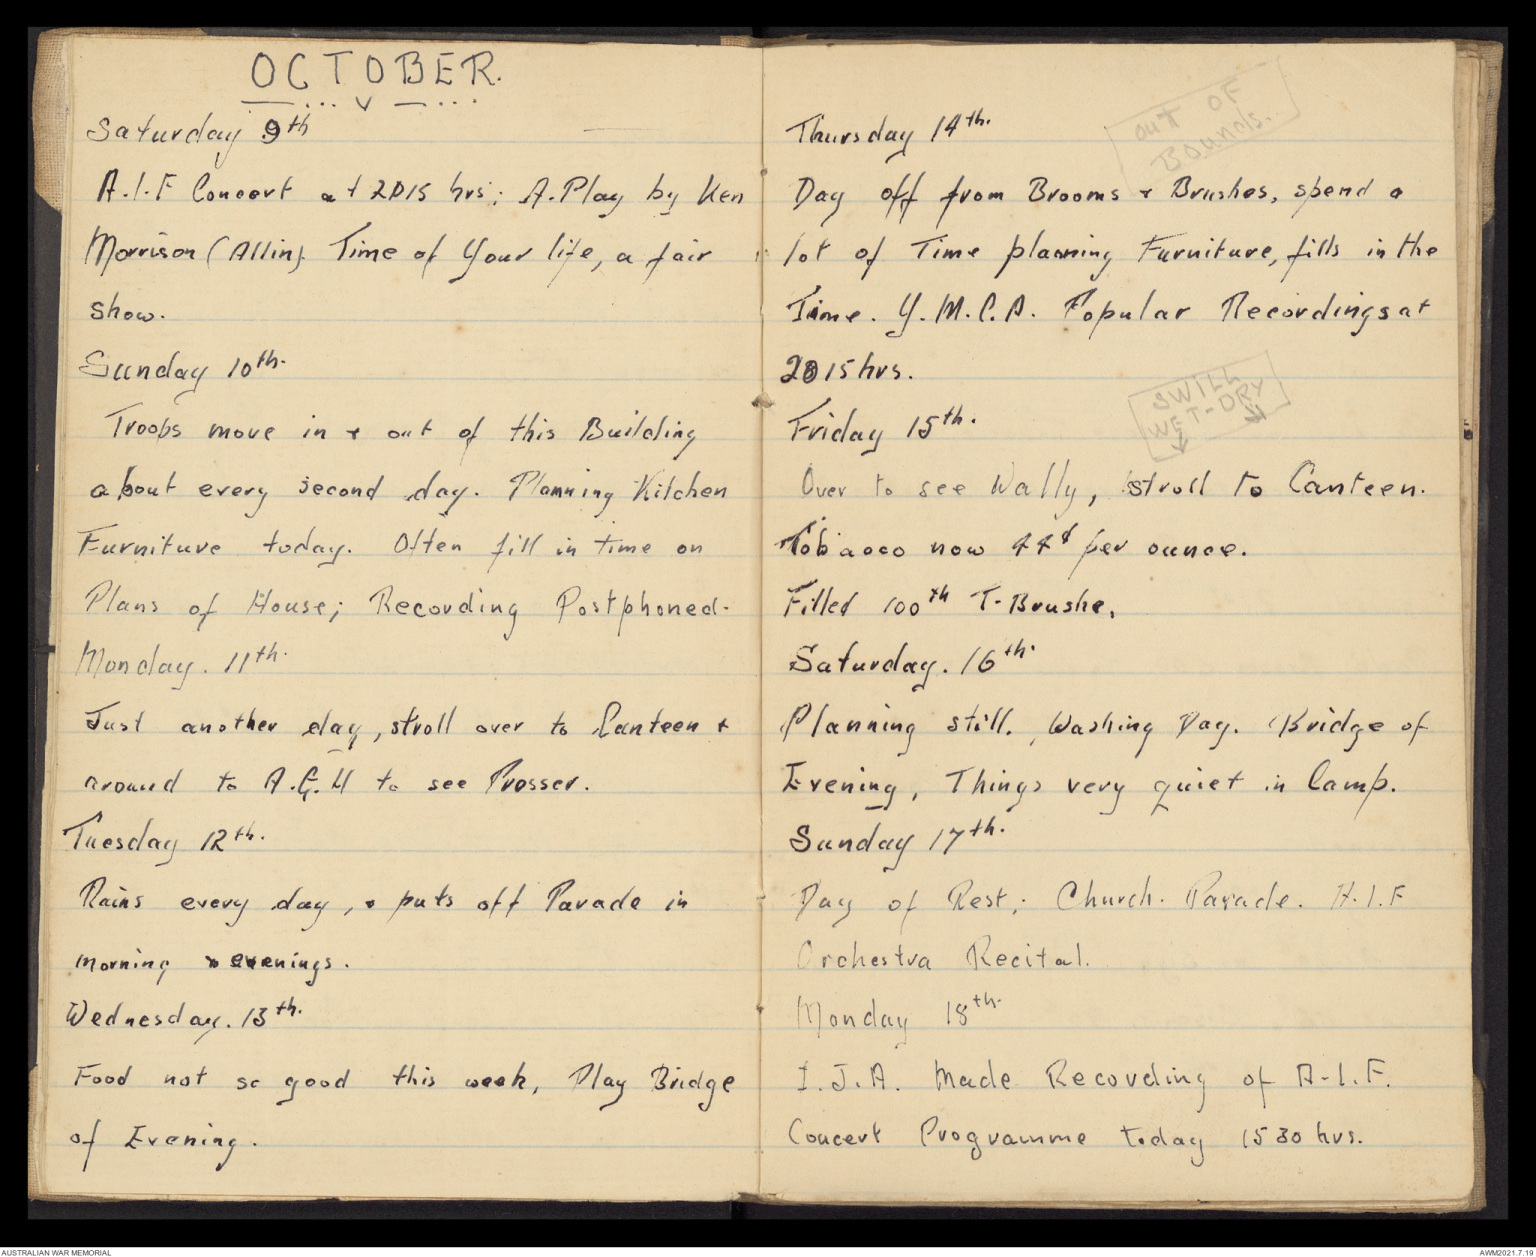 OCTOBER.
Saturday 9th
A.I.F Concert at 2015 hrs; A.Play by Ken
Morrison (Allin). Time of Your life, a fair
show.
Sunday 10th.
Troops move in & out of this Building
about every second day. Planning Kitchen
Furniture today. Often fill in time on
Plans of House; Recording Postphoned.
Monday. 11th.
Just another day, stroll over to Canteen &
around to A.G.H to see Prosser.
Tuesday 12th.
Rains every day, & puts off Parade in
morning & evenings.
Wednesday. 13th.
Food not so good this week, Play Bridge
of Evening.
OUT OF
Bounds.
Thursday 14th.
Day off from Brooms & Brushes, spend a
lot of Time planning Furniture, fills in the
Time. Y.M.C.A. Popular Recordings at
2015 hrs.
SWILL
WET-DRY
Friday 15th.
Over to see Wally, stroll to Canteen.
Tobacco now 44¢ per ounce.
Filled 100th T-Brushe.
Saturday. 16th.
Planning still. Washing Day. Bridge of
Evening, Things very quiet in Camp.
Sunday 17th.
Day of Rest; Church. Parade. A.I.F
Orchestra Recital.
Monday 18th.
I.J.A. Made Recording of A.I.F.
Concert Programme today 1530 hrs.
AUSTRALIAN WAR MEMORIAL
AWM2021.7.19